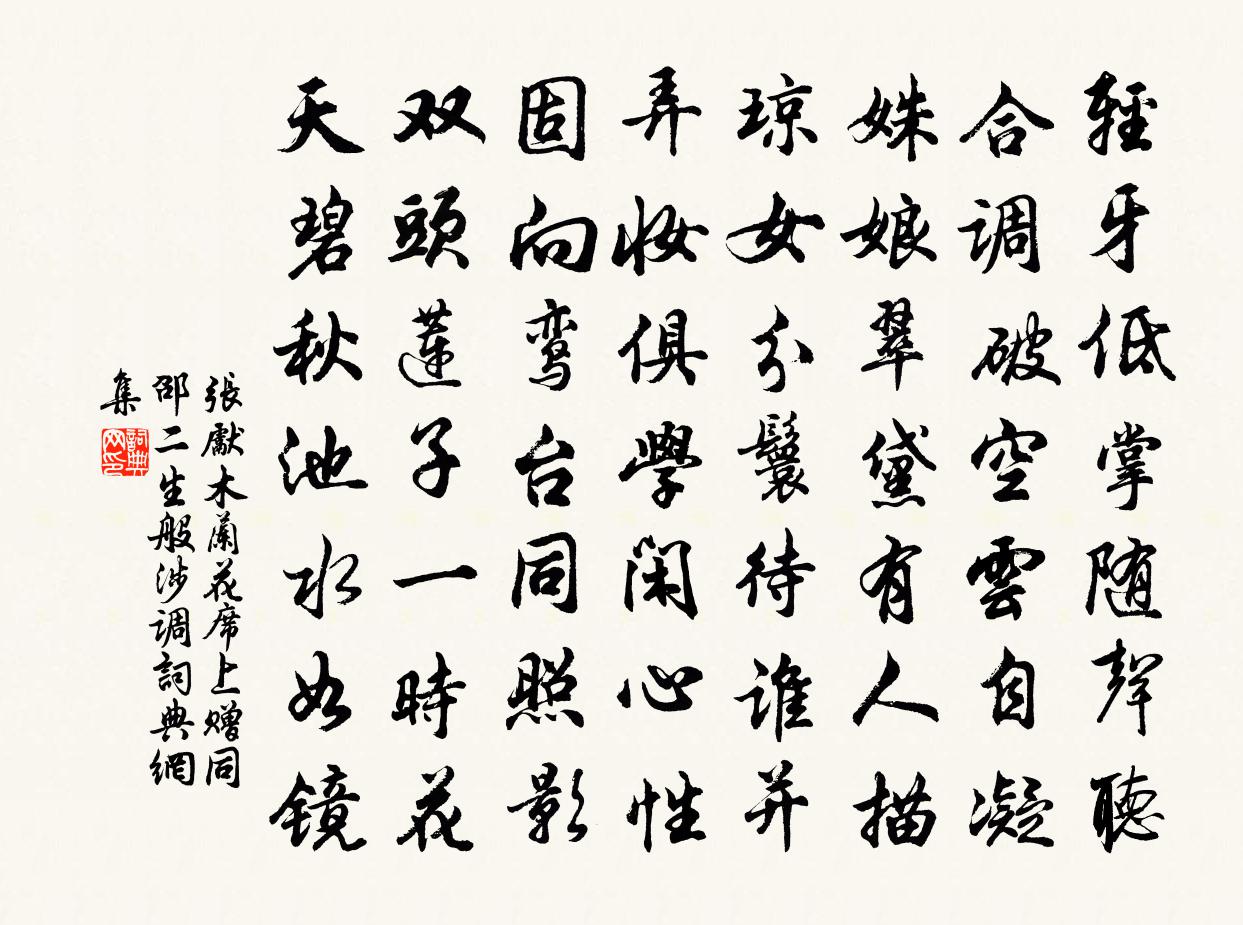 輕牙低掌随聲聽
合调破空雲自凝
姝娘翠黛有人描
琼女分鬟待谁并
弄妝俱學闲心性
固向鸾台同照影
双頭蓮子一時花
天碧秋池水如镜
張獻木蘭花席上赠同
邵二生般涉调詞典網
集
詞典网印